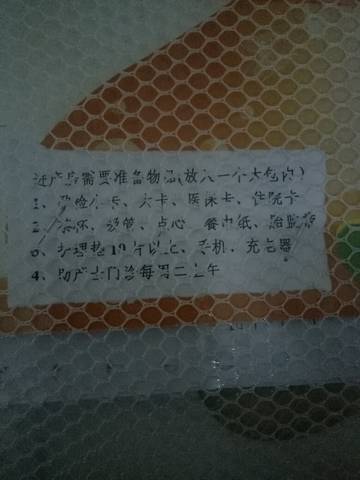 进产房需要准备物品(放入一个大包内)
1、孕检小卡、大卡、医保卡、住院卡
2、水杯、吸管、点心、餐巾纸、
3、护理垫10片以上、手机、充电器
4、助产士门诊每周二上午